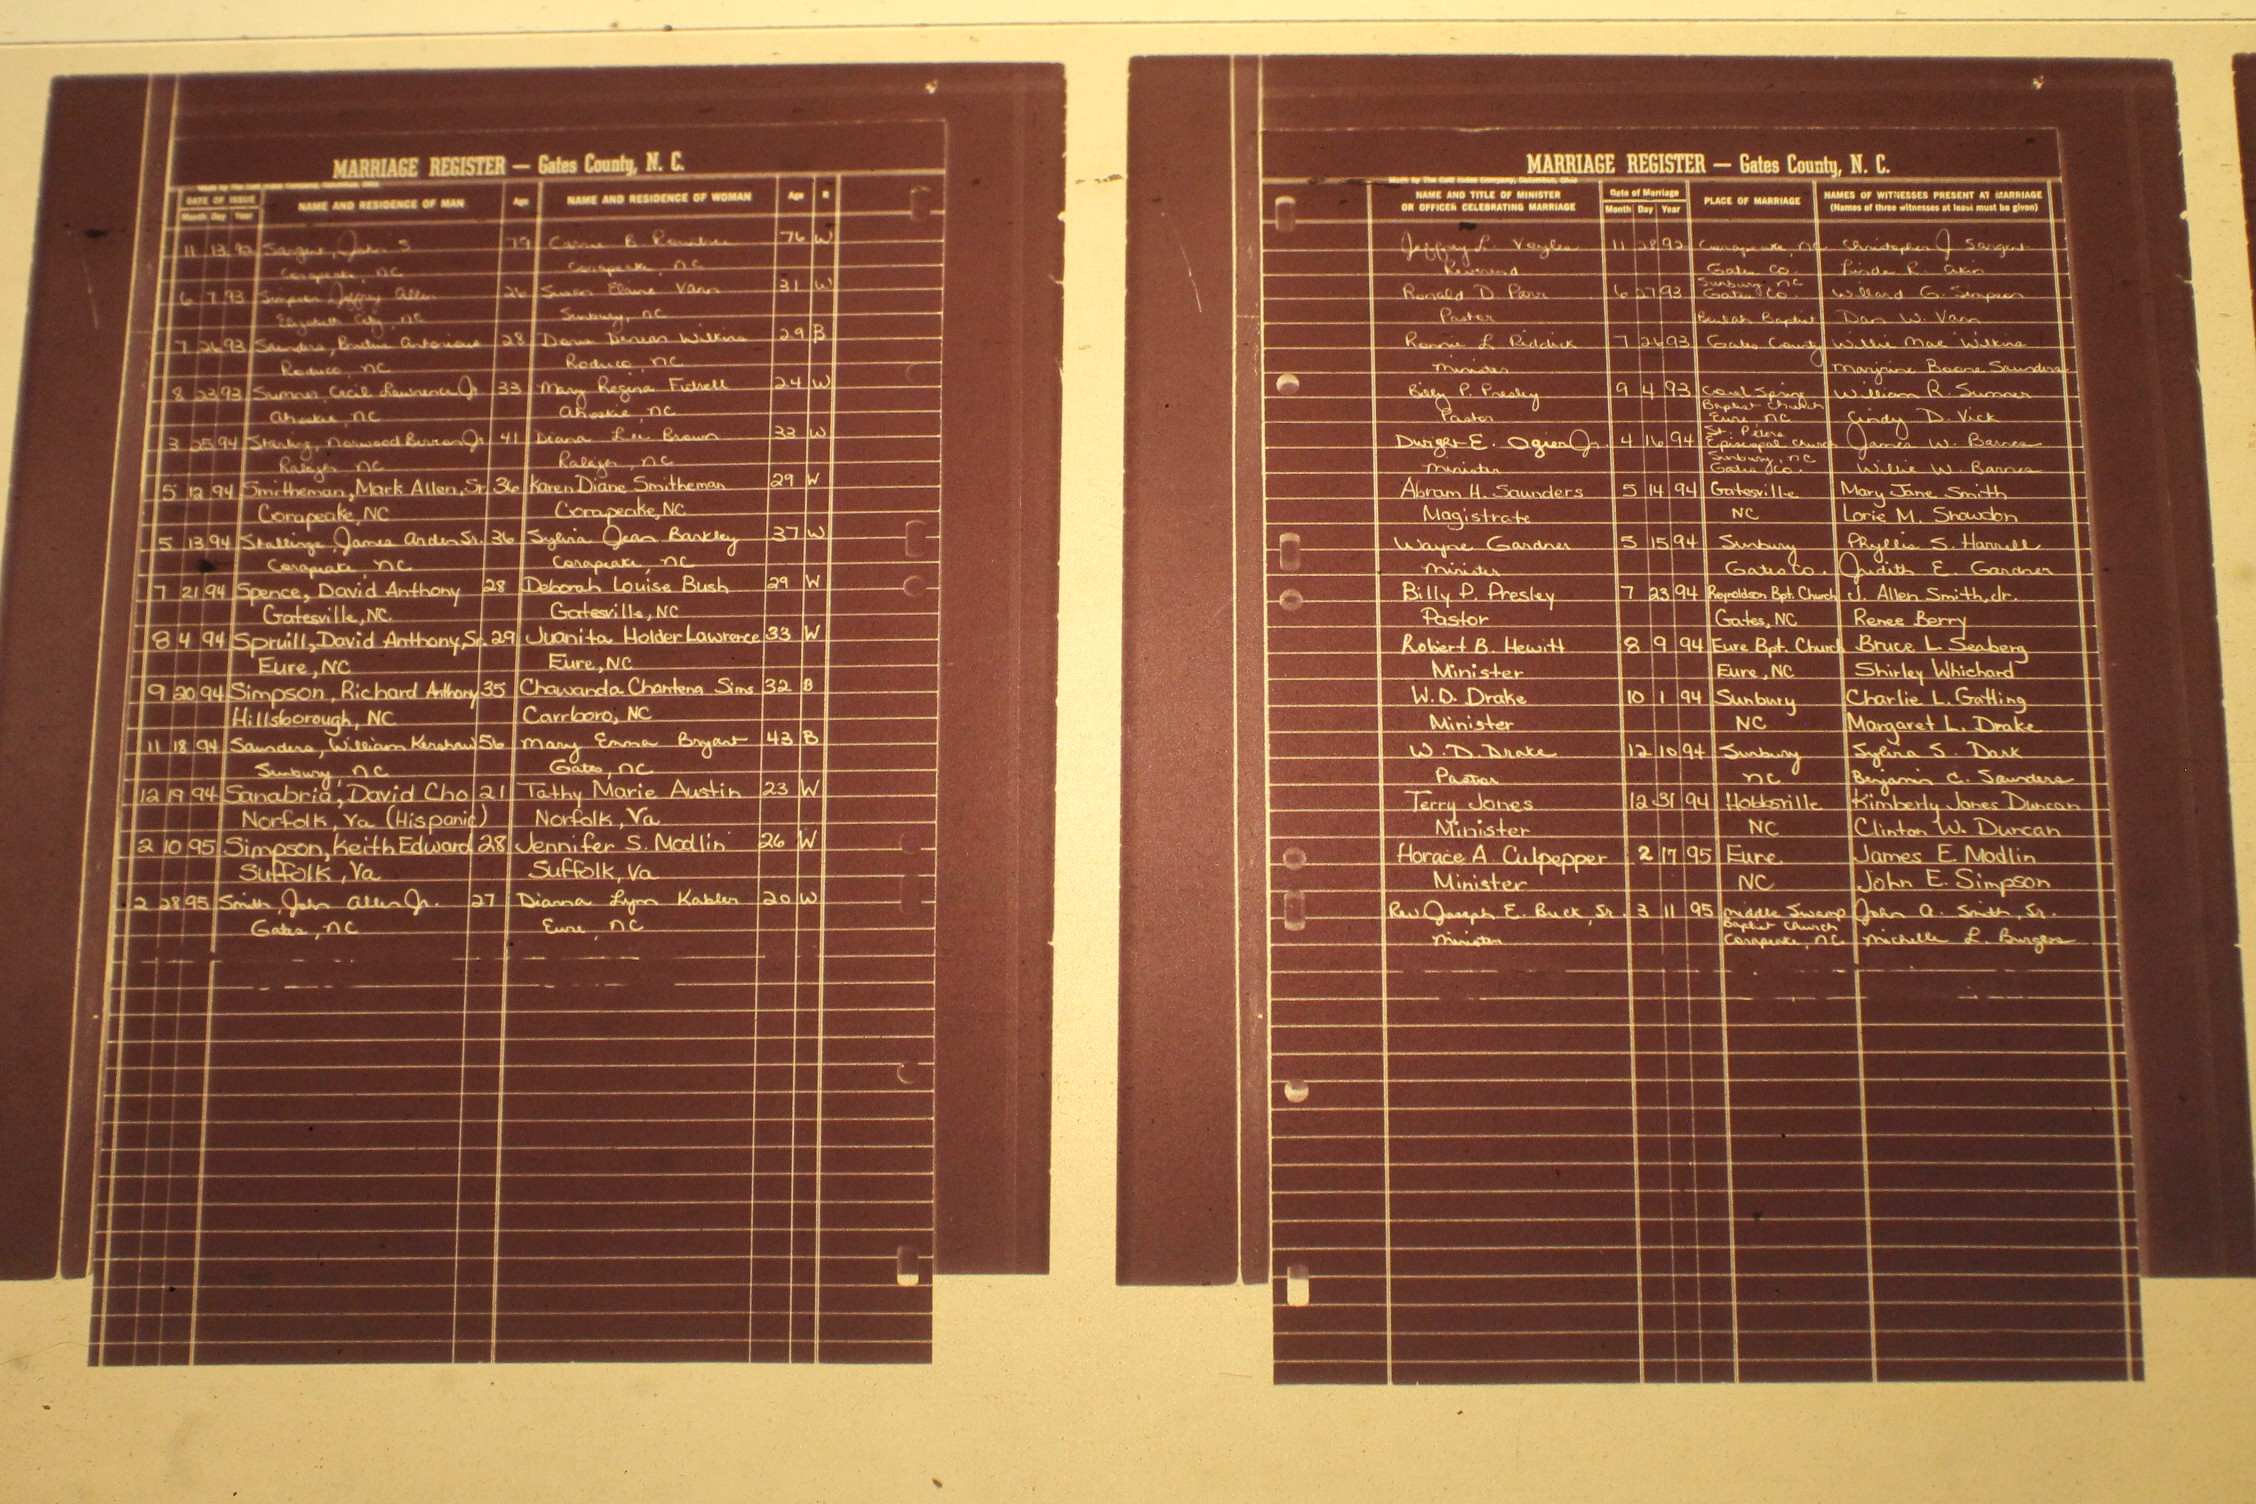 MARRIAGE REGISTER — Gates County, N. C.
Made by The Cott Index Company, Columbus, Ohio
DATE OF ISSUE
Month Day Year
NAME AND RESIDENCE OF MAN
Age
NAME AND RESIDENCE OF WOMAN
Age
R
11 13 92 Sargent, John S 79 Carrie B. Rountree 76 W
Corapeake, NC Corapeake, NC
6 7 93 Simpson Jeffrey Allen 26 Susan Elaine Vann 31 W
Elizabeth City, NC Sunbury, NC
7 26 93 Saunders, Antonious 28 Wilkins 29 B
Roduco, NC Roduco, NC
8 23 93 Sumner, Cecil Lawrence Jr. 33 Mary Regina Futrell 24 W
Ahoskie, NC Ahoskie, NC
3 25 94 Starling, Norwood Jr. 41 Diana Lee Brown 33 W
Raleigh NC Raleigh, NC
5 12 94 Smitheman, Mark Allen, Sr. 36 Karen Diane Smitheman 29 W
Corapeake, NC Corapeake, NC
5 13 94 Stallings, James Arden Sr. 36 Sylvia Jean Barkley 37 W
Corapeake, NC Corapeake, NC
7 21 94 Spence, David Anthony 28 Deborah Louise Bush 29 W
Gatesville, NC Gatesville, NC
8 4 94 Spruill, David Anthony, Sr. 29 Juanita Holder Lawrence 33 W
Eure, NC Eure, NC
9 20 94 Simpson, Richard Anthony 35 Chawanda Chantena Sims 32 B
Hillsborough, NC Carrboro, NC
11 18 94 Saunders, William Kershaw 56 Mary Emma Bryant 43 B
Sunbury, NC Gates, NC
12 19 94 Sanabria, David Cho 21 Tathy Marie Austin 23 W
Norfolk, Va (Hispanic) Norfolk, Va
2 10 95 Simpson, Keith Edward 28 Jennifer S. Modlin 26 W
Suffolk, Va Suffolk, Va
2 28 95 Smith, John Allen Jr. 27 Dianna Lynn Kabler 20 W
Gates, NC Eure, NC
MARRIAGE REGISTER — Gates County, N. C.
Made by The Cott Index Company, Columbus, Ohio
NAME AND TITLE OF MINISTER
OR OFFICER CELEBRATING MARRIAGE
Date of Marriage
Month Day Year
PLACE OF MARRIAGE
NAMES OF WITNESSES PRESENT AT MARRIAGE
(Names of three witnesses at least must be given)
Jeffrey L. Voyles 11 28 92 Corapeake, NC Christopher J Sargent
Reverend Gates Co. Linda R. Akin
Ronald D. Parr 6 27 93 Sunbury, NC Gates Co. Willard G. Simpson
Pastor Beulah Baptist Dan W. Vann
Ronnie L Riddick 7 26 93 Gates County Willie Mae Wilkins
Minister Marjorine Boone Saunders
Billy P. Presley 9 4 93 Cool Spring William R. Sumner
Baptist Church
Pastor Eure, NC Cindy D. Vick
Dwight E. Ogier Jr. 4 16 94 St. Peters Episcopal Church James W. Barnes
Sunbury, NC
Minister Gates Co. Willie W. Barnes
Abram H. Saunders 5 14 94 Gatesville Mary Jane Smith
Magistrate NC Lorie M. Snowdon
Wayne Gardner 5 15 94 Sunbury Phyllis S. Harrell
Minister Gates Co. Judith E. Gardner
Billy P. Presley 7 23 94 Reynoldson Bpt. Church J. Allen Smith, Jr.
Pastor Gates, NC Renee Berry
Robert B. Hewitt 8 9 94 Eure Bpt. Church Bruce L. Seaberg
Minister Eure, NC Shirley Whichard
W. D. Drake 10 1 94 Sunbury Charlie L. Gatling
Minister NC Margaret L. Drake
W. D. Drake 12 10 94 Sunbury Sylvia S. Dark
Pastor NC Benjamin C. Saunders
Terry Jones 12 31 94 Hobbsville Kimberly Jones Duncan
Minister NC Clinton W. Duncan
Horace A Culpepper 2 17 95 Eure James E. Modlin
Minister NC John E. Simpson
Rev Joseph E. Buck, Sr. 3 11 95 Middle Swamp John A. Smith, Sr.
Baptist Church
Minister Corapeake, NC Michelle L. Burgess